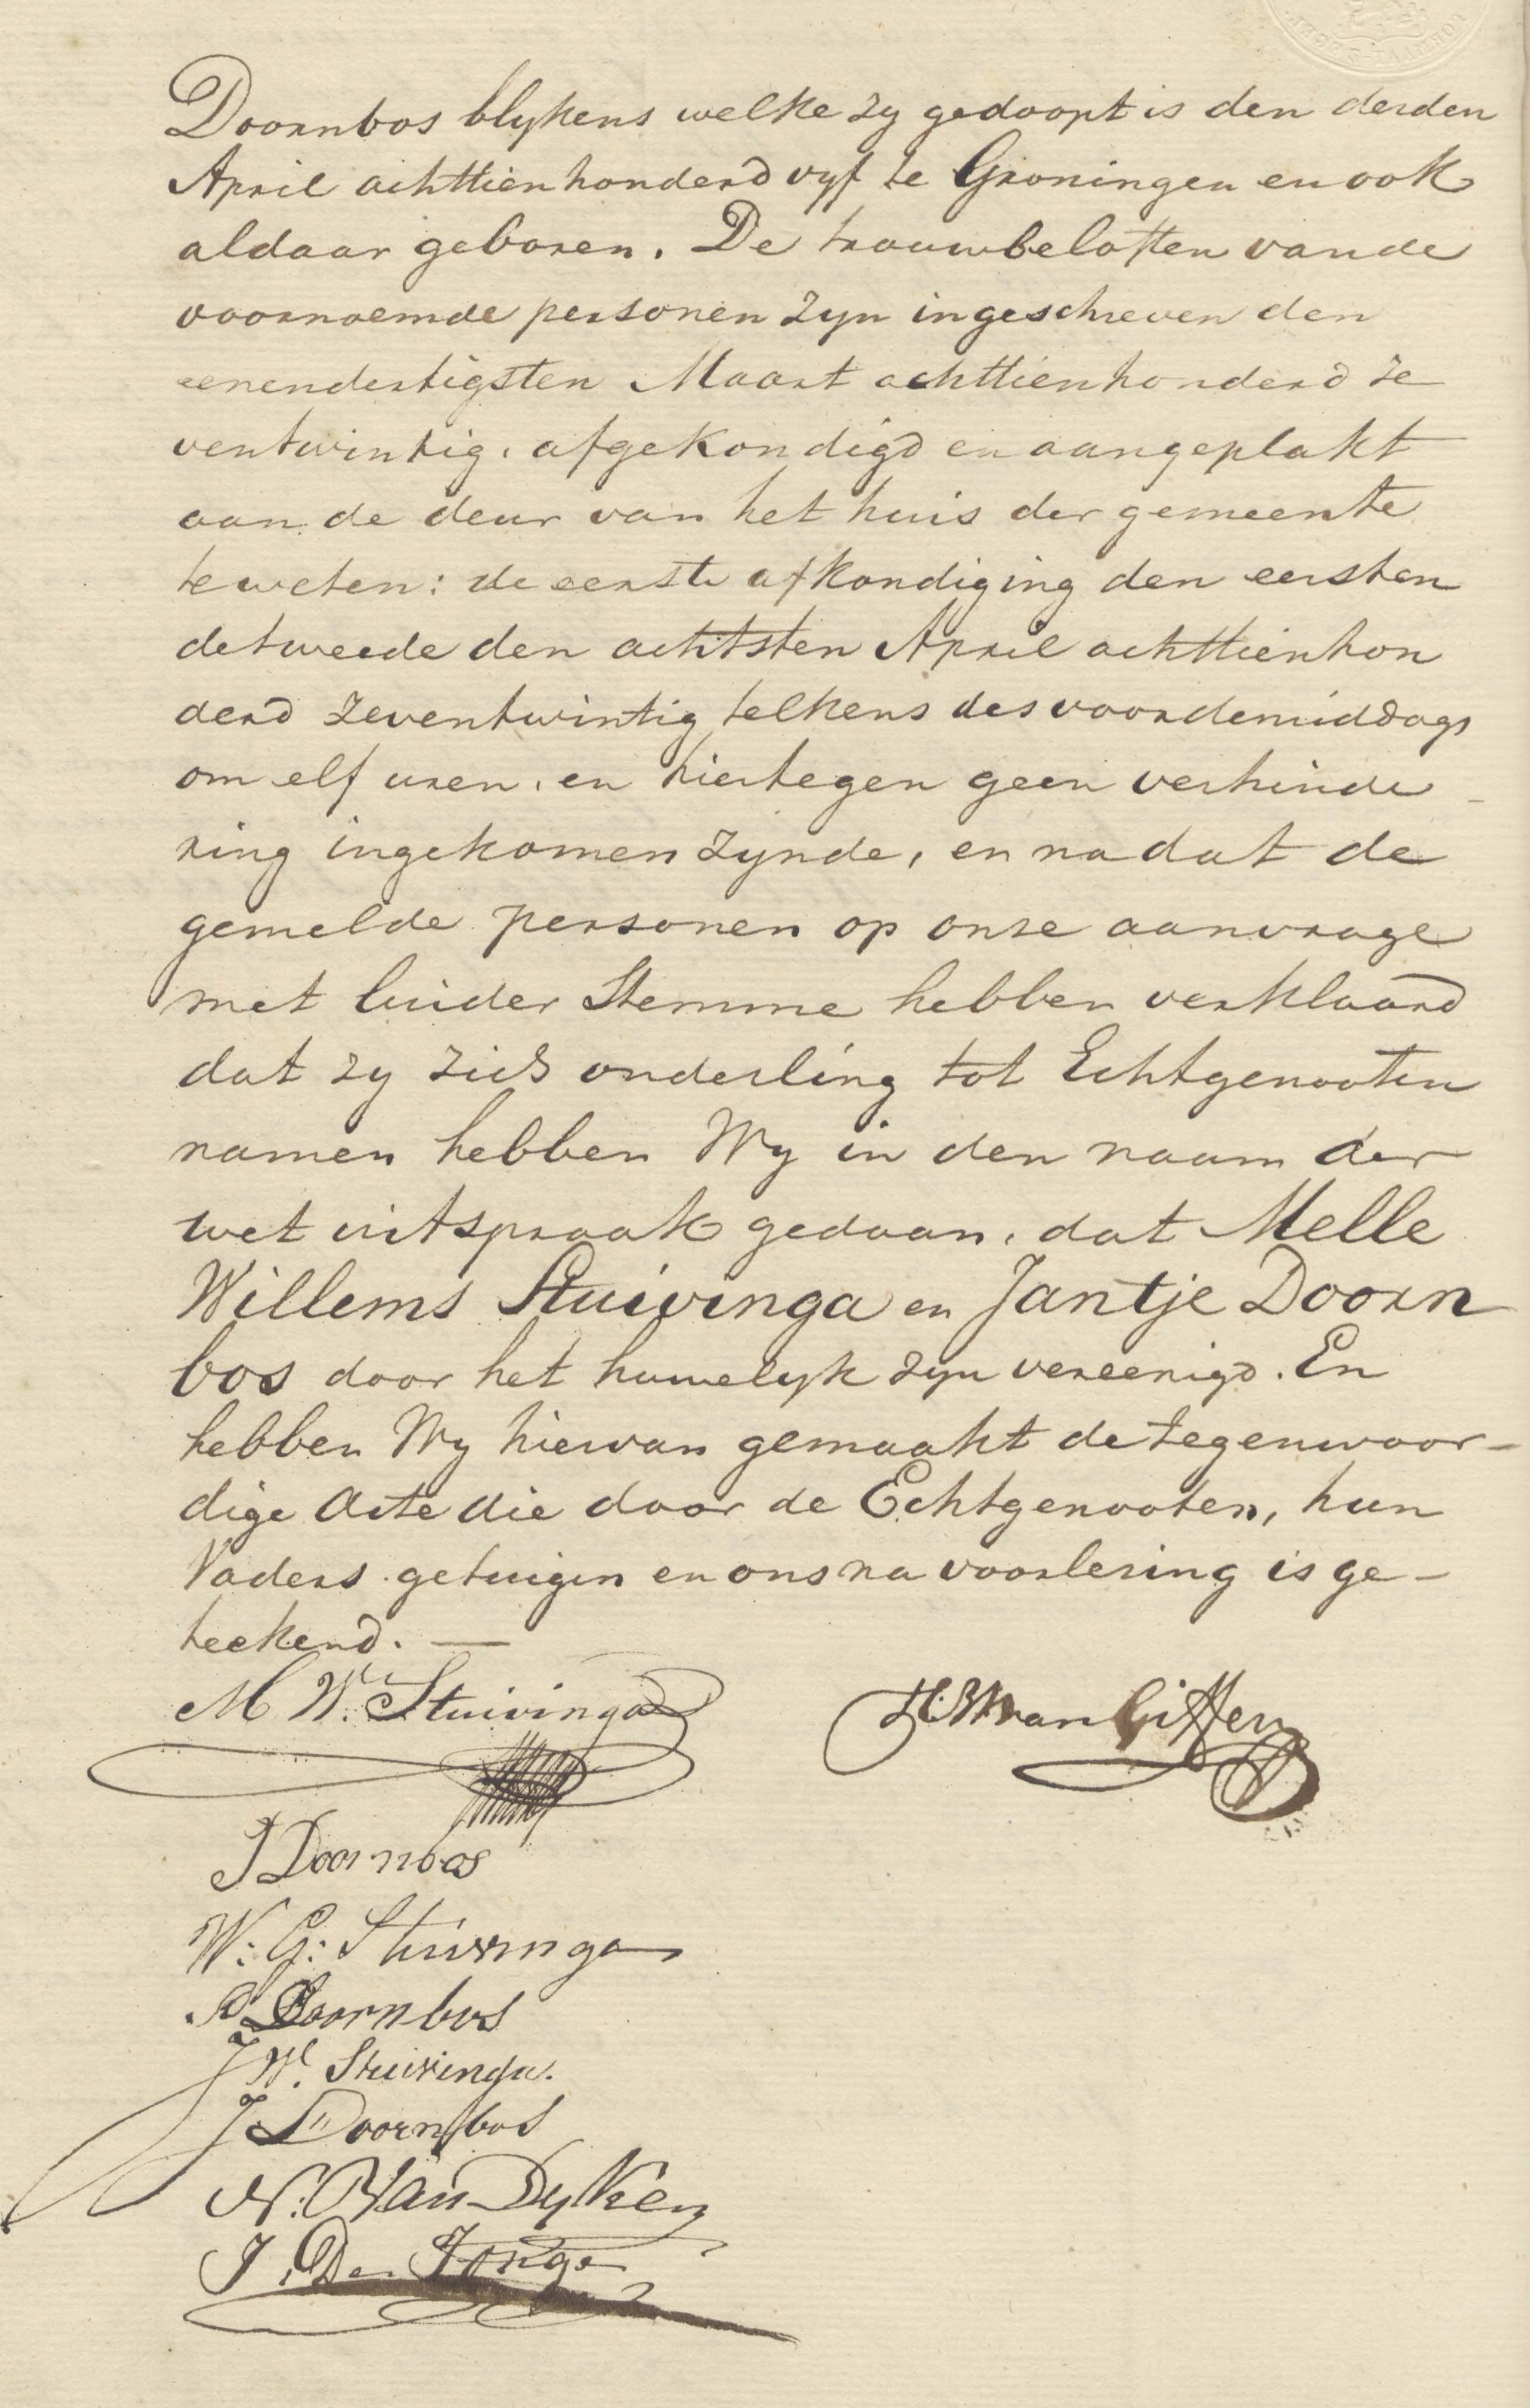 Doornbos blykens welke zy gedoopt is den derden
April achttienhonderd vyf te Groningen en ook
aldaar geboren. De trouwbeloften van de
voornoemde personen zyn ingeschreven den
eenendertigsten Maart achttienhonderd ze
ventwintig, afgekondigd en aangeplakt
aan de deur van het huis der gemeente
te weten: de eerste afkondiging den eersten
de tweede den achtsten April achttienhon
derd zeventwintig telkens des voordemiddags
om elf uren, en hiertegen geen verhinde-
ring ingekomen zynde, en na dat de
gemelde personen op onze aanvrage
met luider Stemme hebben verklaard
dat zy zich onderling tot Echtgenooten
namen hebben Wy in den naam der
wet uitspraak gedaan, dat Melle
Willems Stuivinga en Jantje Doorn
bos door het huwelyk zyn vereenigd. En
hebben Wy hiervan gemaakt de tegenwoor-
dige Acte die door de Echtgenooten, hun
Vaders getuigen en ons na voorlezing is ge-
teekend. —
M W. Stuivinga
van Giffen
J Doornbos
W: G: Stuivinga
Doornbos
J W. Stuivinga.
J Doornbos
N. Van Dyken
J. De Jonge